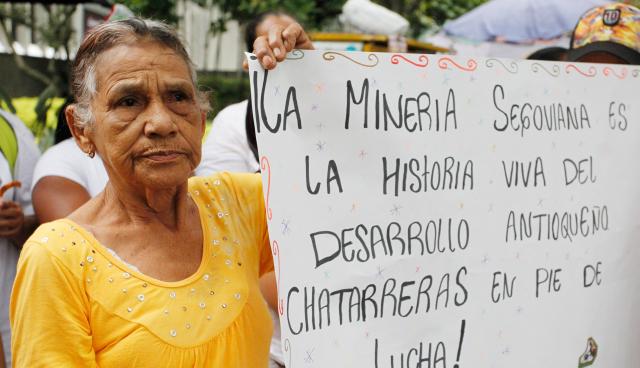 ¡LA MINERIA SEGOVIANA ES
LA HISTORIA VIVA DEL
DESARROLLO ANTIOQUEÑO
CHATARRERAS EN PIE DE
LUCHA!